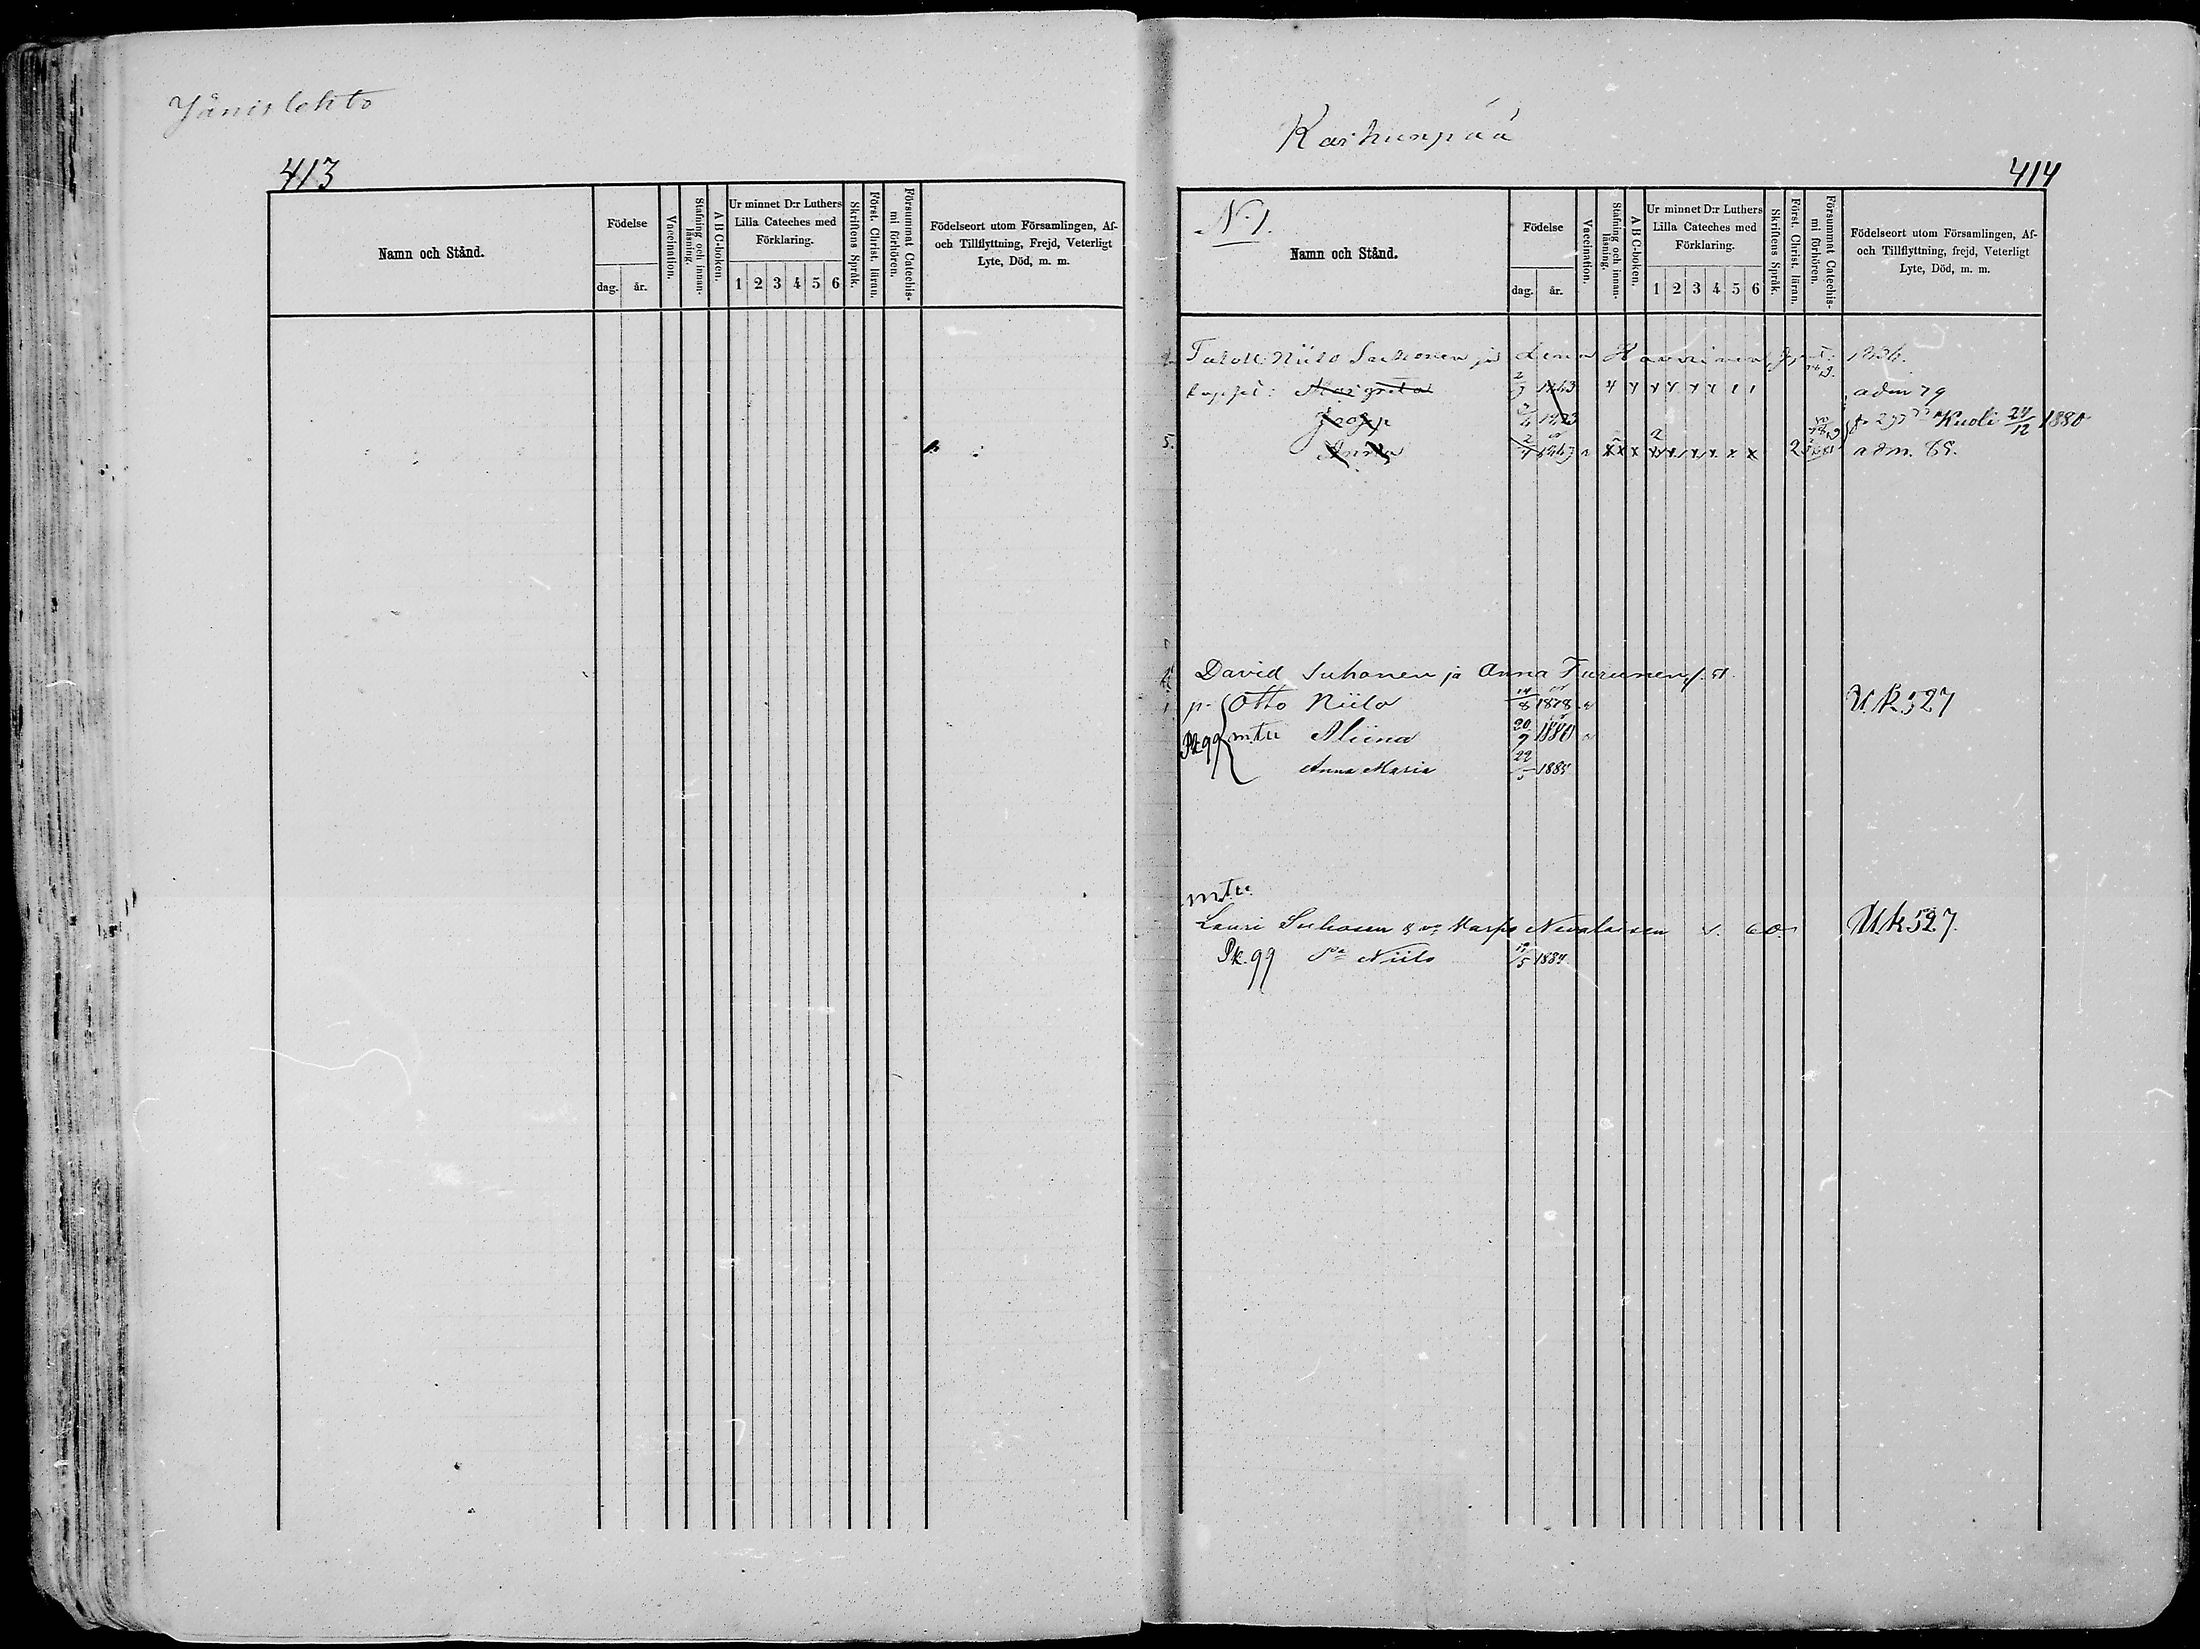 Jänislehto
413
Namn och Stånd.
Födelse
dag.
år.
Vaccination.
Stafning och innan-
läsning.
A B C-boken.
Ur minnet D:r Luthers
Lilla Cateches med
Förklaring.
1 2 3 4 5 6
Skriftens Språk.
Först. Christ. läran.
Försummat Catechis-
mi förhören.
Födelseort utom Församlingen, Af-
och Tillflyttning, Frejd, Veterligt
Lyte, Död, m. m.
Karhunpää
414
N:1.
Namn och Stånd.
Födelse
dag.
år.
Vaccination.
Stafning och innan-
läsning.
A B C-boken.
Ur minnet D:r Luthers
Lilla Cateches med
Förklaring.
1 2 3 4 5 6
Skriftens Språk.
Först. Christ. läran.
Försummat Catechis-
mi förhören.
Födelseort utom Församlingen, Af-
och Tillflyttning, frejd, Veterligt
Lyte, Död, m. m.
Niilo Suhonen ja Lena
Margreta 1863 adm 79
Kuoli 24/12 1880
5. Anna adm. 85.
David Suhonen ja Anna Turunen
p. Otto Niilo 14/8 1878 U.k 527
Pk 99 m.tu Aliina 20/9 1880
Anna Maria 22/5 1885
m.tu
Lauri Suhosen Nevalaisen 60. U.k 527.
Pk. 99 Niilo 1884